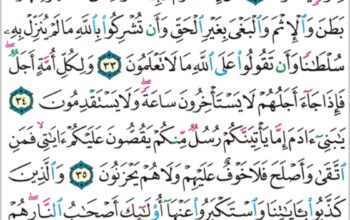 بَطَنَ وَٱلْإِثْمَ وَٱلْبَغْىَ بِغَيْرِ ٱلْحَقِّ وَأَن تُشْرِكُوا۟ بِٱللَّهِ مَا لَمْ يُنَزِّلْ بِهِۦ
سُلْطَٰنًا وَأَن تَقُولُوا۟ عَلَى ٱللَّهِ مَا لَا تَعْلَمُونَ ٣٣ وَلِكُلِّ أُمَّةٍ أَجَلٌ
فَإِذَا جَآءَ أَجَلُهُمْ لَا يَسْتَأْخِرُونَ سَاعَةً وَلَا يَسْتَقْدِمُونَ ٣٤
يَٰبَنِىٓ ءَادَمَ إِمَّا يَأْتِيَنَّكُمْ رُسُلٌ مِّنكُمْ يَقُصُّونَ عَلَيْكُمْ ءَايَٰتِى فَمَنِ
ٱتَّقَىٰ وَأَصْلَحَ فَلَا خَوْفٌ عَلَيْهِمْ وَلَا هُمْ يَحْزَنُونَ ٣٥ وَٱلَّذِينَ
كَذَّبُوا۟ بِـَٔايَٰتِنَا وَٱسْتَكْبَرُوا۟ عَنْهَآ أُو۟لَٰٓئِكَ أَصْحَٰبُ ٱلنَّارِ هُمْ